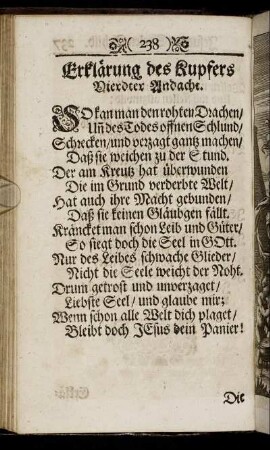 ( 238 )
Erklärung des Kupfers
Vierdter Andacht.
SO kan man den rohten Drachen/
Uñ des Todes offnen Schlund/
Schrecken/ und verzagt gantz machen/
Daß sie weichen zu der Stund.
Der am Kreutz hat überwunden
Die im Grund verderbte Welt/
Hat auch ihre Macht gebunden/
Daß sie keinen Gläubgen fällt.
Kräncket man schon Leib und Güter/
So siegt doch die Seel in GOtt.
Nur des Leibes schwache Glieder/
Nicht die Seele weicht der Noht.
Drum getrost und unverzaget/
Liebste Seel/ und glaube mir;
Wenn schon alle Welt dich plaget/
Bleibt doch JEsus dein Panier!
Die